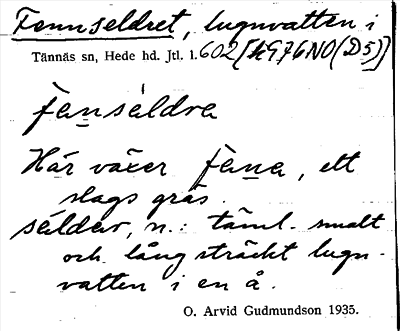 Fennseldret, lugnvatten i
Tännäs sn, Hede hd. Jtl. l. 602 [k976NO(D5)]
fanséldra
Här växer fana, ett
slags gräs.
séldər, n.: täml. smalt
och lång sträckt lugn-
vatten i en å.
O. Arvid Gudmundson 1935.